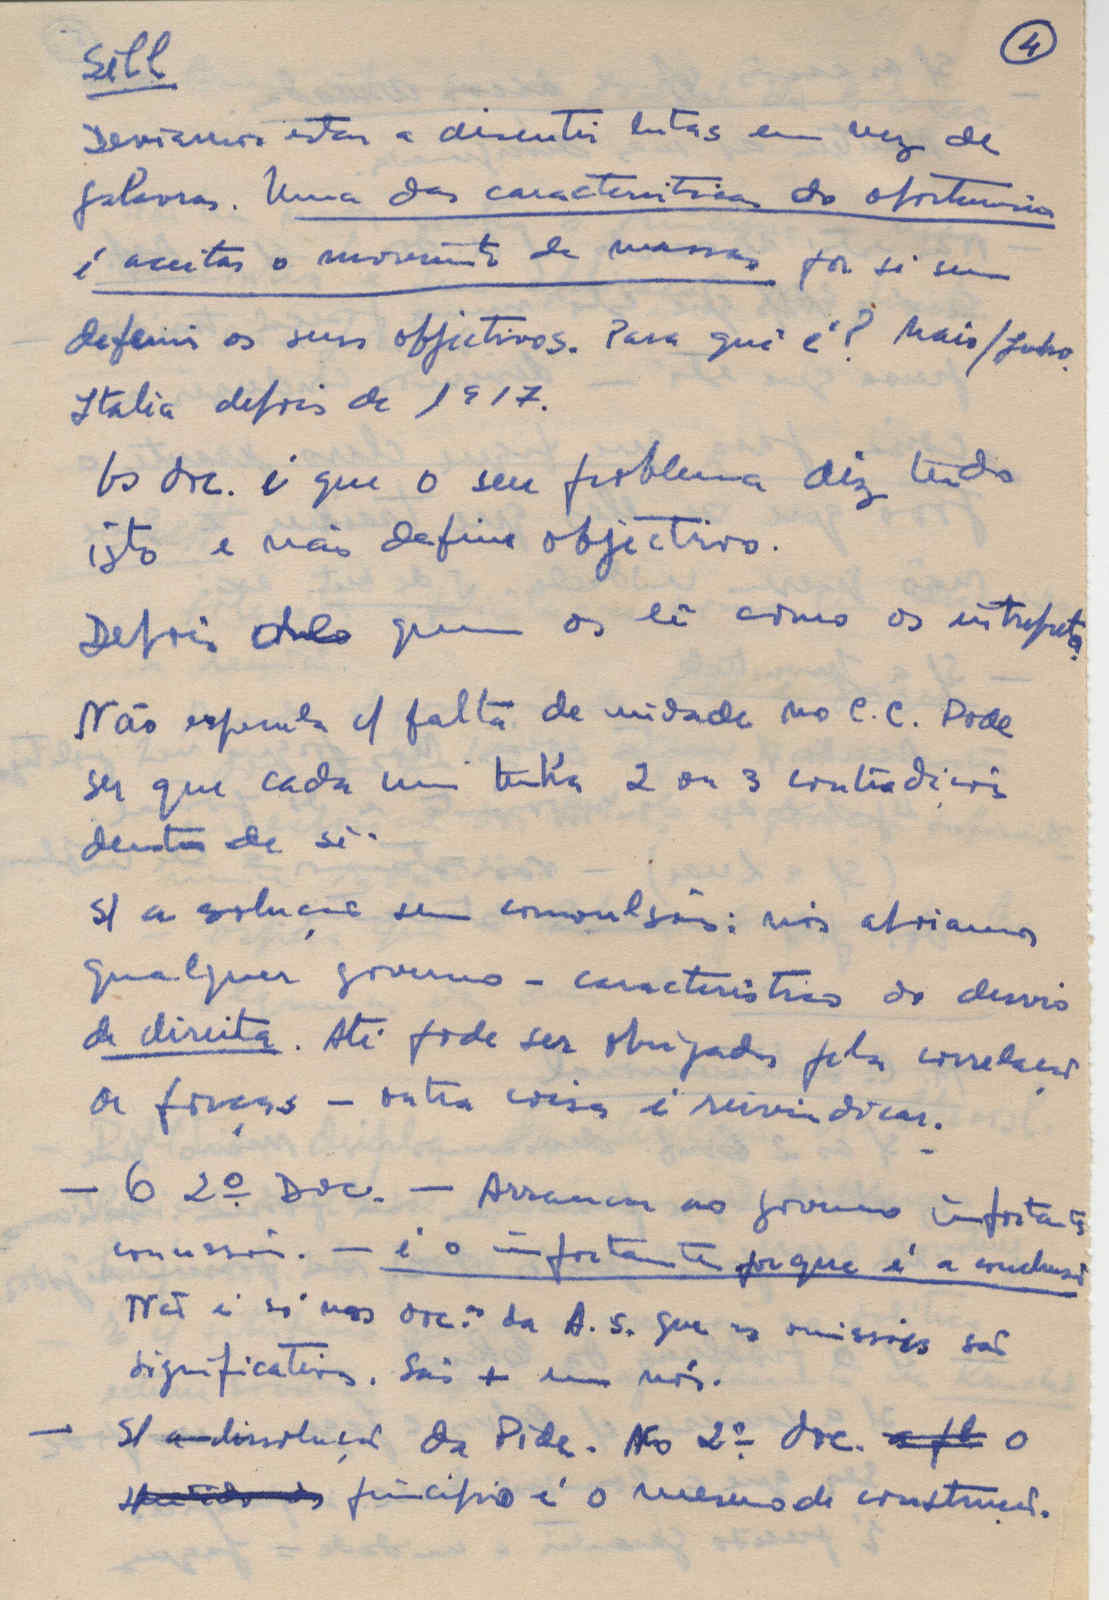 4
Sell
Deviamos estar a discutir lutas em vez de
palavras. Uma das caracteristicas do oportunismo
é aceitar o movimento de massas por si sem
definir os seus objectivos. Para quê é? Maio/Junho.
Italia depois de 1917.
Os doc. é que o seu problema diz tudo
isto e não define objectivo.
Depois quem os lê como os intrepreta?
Não especula c/ falta de unidade no C.C. Pode
ser que cada um tenha 2 ou 3 contradições
dentro de si.
S/ a solução sem convulsões: nós apoiamos
qualquer governo - caracteristicas do desvio
de direita. Até pode ser obrigados pela correlação
de forças - outra coisa é reivindicar.
- O 2º Doc. - Arrancar ao governo importantes
concessões. - é o importante porque é a conclusão
Não é só nos doc.os da A.S. que as omissões são
significativas. São + em nós.
- S/ a dissolução da Pide. No 2º doc. o
principio é o mesmo de construção.